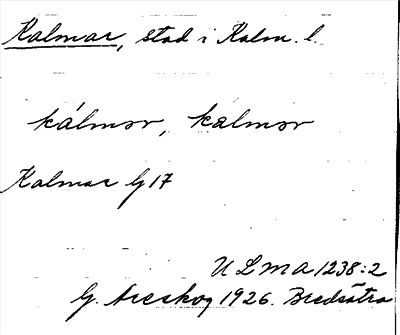 Kalmar, stad i Kalm. l.
kálmər, kalmər
Kalmar G 17
ULMA 1238:2
G. Areskog 1926. Bredsätra